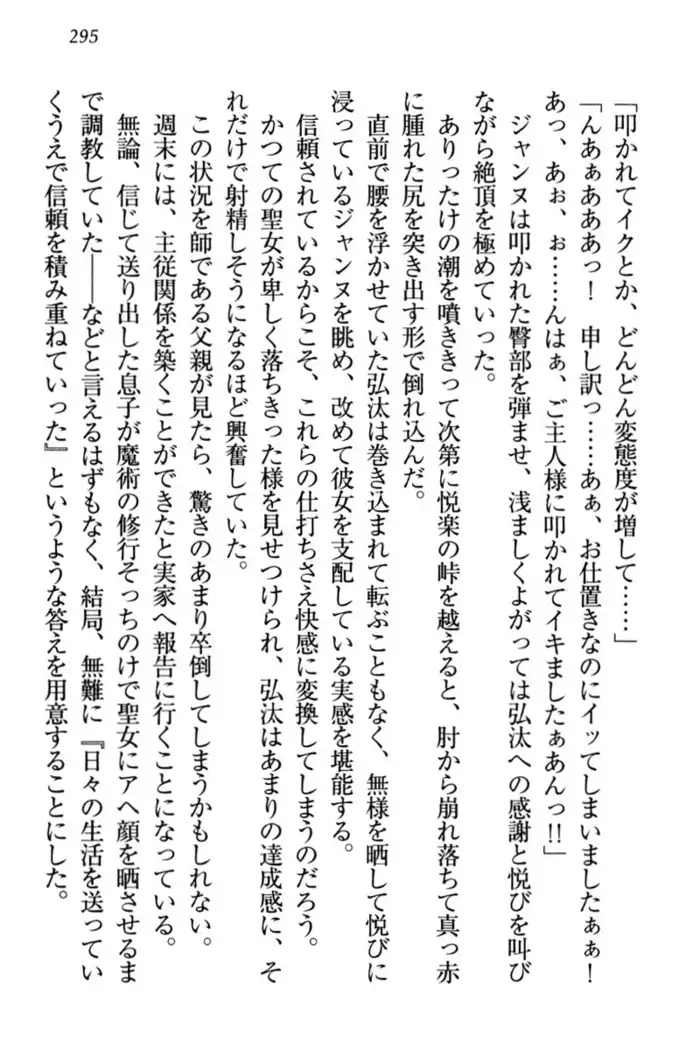 295
「叩かれてイクとか、どんどん変態度が増して……」
「んあぁあああっ！　申し訳っ……あぁ、お仕置きなのにイッてしまいましたぁぁ！
あっ、あぉ、ぉ……んはぁ、ご主人様に叩かれてイキましたぁあんっ!!」
ジャンヌは叩かれた臀部を弾ませ、浅ましくよがっては弘汰への感謝と悦びを叫び
ながら絶頂を極めていった。
ありったけの潮を噴ききって次第に悦楽の峠を越えると、肘から崩れ落ちて真っ赤
に腫れた尻を突き出す形で倒れ込んだ。
直前で腰を浮かせていた弘汰は巻き込まれて転ぶこともなく、無様を晒して悦びに
浸っているジャンヌを眺め、改めて彼女を支配している実感を堪能する。
信頼されているからこそ、これらの仕打ちさえ快感に変換してしまうのだろう。
かつての聖女が卑しく落ちきった様を見せつけられ、弘汰はあまりの達成感に、そ
れだけで射精しそうになるほど興奮していた。
この状況を師である父親が見たら、驚きのあまり卒倒してしまうかもしれない。
週末には、主従関係を築くことができたと実家へ報告に行くことになっている。
無論、信じて送り出した息子が魔術の修行そっちのけで聖女にアヘ顔を晒させるま
で調教していた――などと言えるはずもなく、結局、無難に『日々の生活を送ってい
くうえで信頼を積み重ねていった』というような答えを用意することにした。